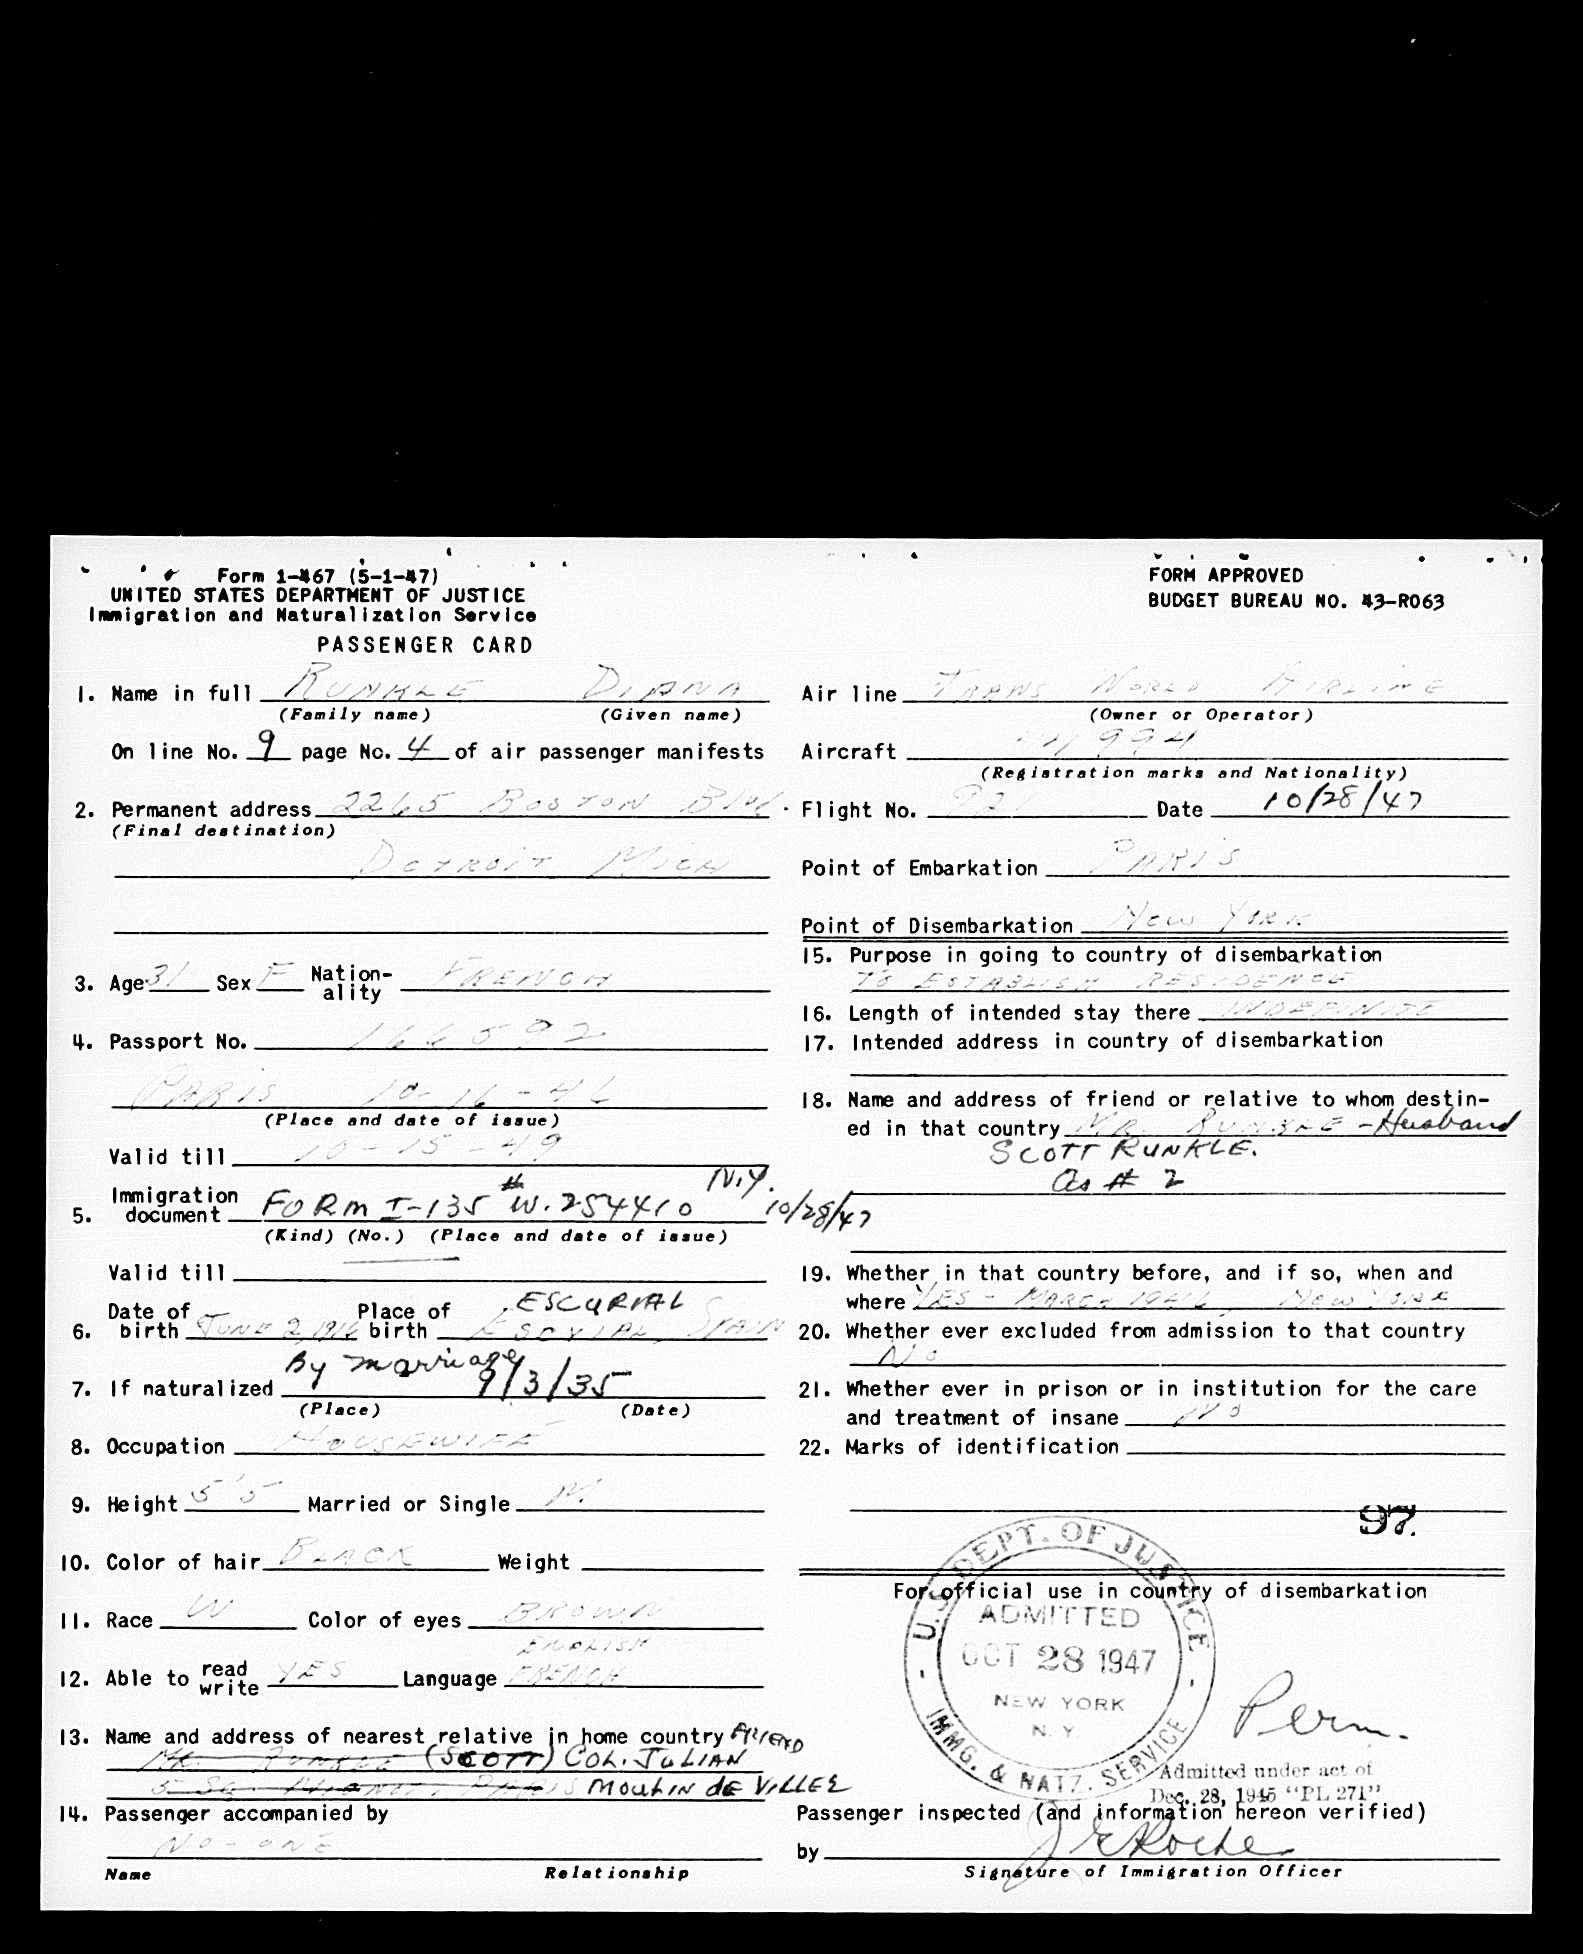 Form I-467 (5-1-47)
UNITED STATES DEPARTMENT OF JUSTICE
Immigration and Naturalization Service
PASSENGER CARD
FORM APPROVED
BUDGET BUREAU NO. 43-R063
1. Name in full RUNKLE DIANA
(Family name) (Given name)
On line No. 9 page No. 4 of air passenger manifests
2. Permanent address 2265 BOSTON Blvd.
(Final destination)
DETROIT MICH
3. Age 31 Sex F Nation-
ality FRENCH
4. Passport No. 166592
PARIS 10-16-46
(Place and date of issue)
Valid till 10-15-49
5. Immigration
document FORM I-135 # W.254410 N.Y. 10/28/47
(Kind) (No.) (Place and date of issue)
Valid till
6. Date of
birth JUNE 2, 1916 Place of
birth ESCURIAL SPAIN
7. If naturalized By marriage 9/3/35
(Place) (Date)
8. Occupation HOUSEWIFE
9. Height 5'5" Married or Single M.
10. Color of hair BLACK Weight
11. Race W Color of eyes BROWN
12. Able to read
write YES Language ENGLISH
FRENCH
13. Name and address of nearest relative in home country FRIEND
MR. RUNKLE (SCOTT) COL. JULIAN
PARIS MOULIN de VILLEZ
14. Passenger accompanied by
NO-ONE
Name Relationship
Air line TRANS WORLD AIRLINE
(Owner or Operator)
Aircraft
(Registration marks and Nationality)
Flight No. 921 Date 10/28/47
Point of Embarkation PARIS
Point of Disembarkation NEW YORK
15. Purpose in going to country of disembarkation
TO ESTABLISH RESIDENCE
16. Length of intended stay there INDEFINITE
17. Intended address in country of disembarkation
18. Name and address of friend or relative to whom destin-
ed in that country MR. RUNKLE - Husband
SCOTT RUNKLE.
as # 2
19. Whether in that country before, and if so, when and
where YES - MARCH 1946, NEW YORK
20. Whether ever excluded from admission to that country
NO
21. Whether ever in prison or in institution for the care
and treatment of insane NO
22. Marks of identification
97.
For official use in country of disembarkation
U.S. DEPT. OF JUSTICE
ADMITTED
OCT 28 1947
NEW YORK
N. Y.
IMMG. & NATZ. SERVICE
Perm.
Admitted under act of
Dec. 28, 1945 "PL 271"
Passenger inspected (and information hereon verified)
by J E Roche
Signature of Immigration Officer